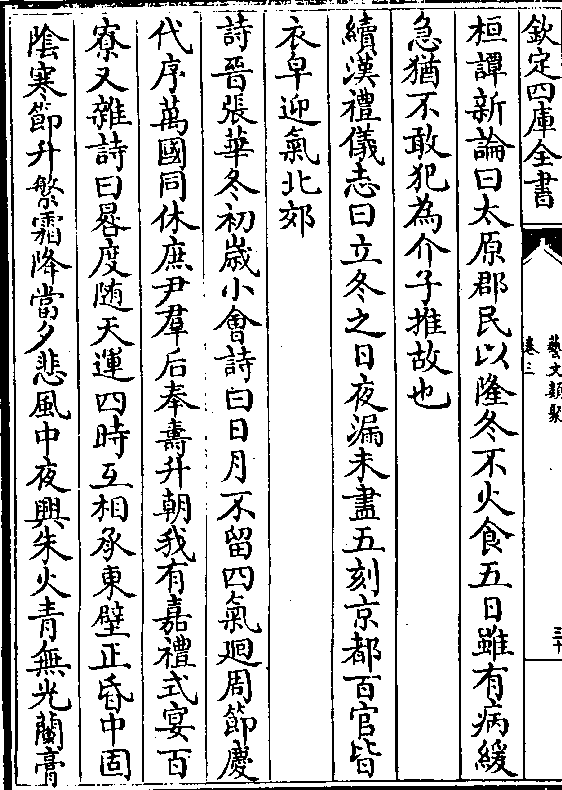 欽定四庫全書
藝文類聚
卷三
三十
桓譚新論曰太原郡民以隆冬不火食五日雖有病緩
急猶不敢犯為介子推故也
續漢禮儀志曰立冬之日夜漏未盡五刻京都百官皆
衣皁迎氣北郊
詩晉張華冬初歲小會詩曰日月不留四氣迴周節慶
代序萬國同休庶尹羣后奉壽升朝我有嘉禮式宴百
寮又雜詩曰晷度随天運四時互相承東壁正昏中固
陰寒節升繁霜降當夕悲風中夜興朱火青無光蘭膏